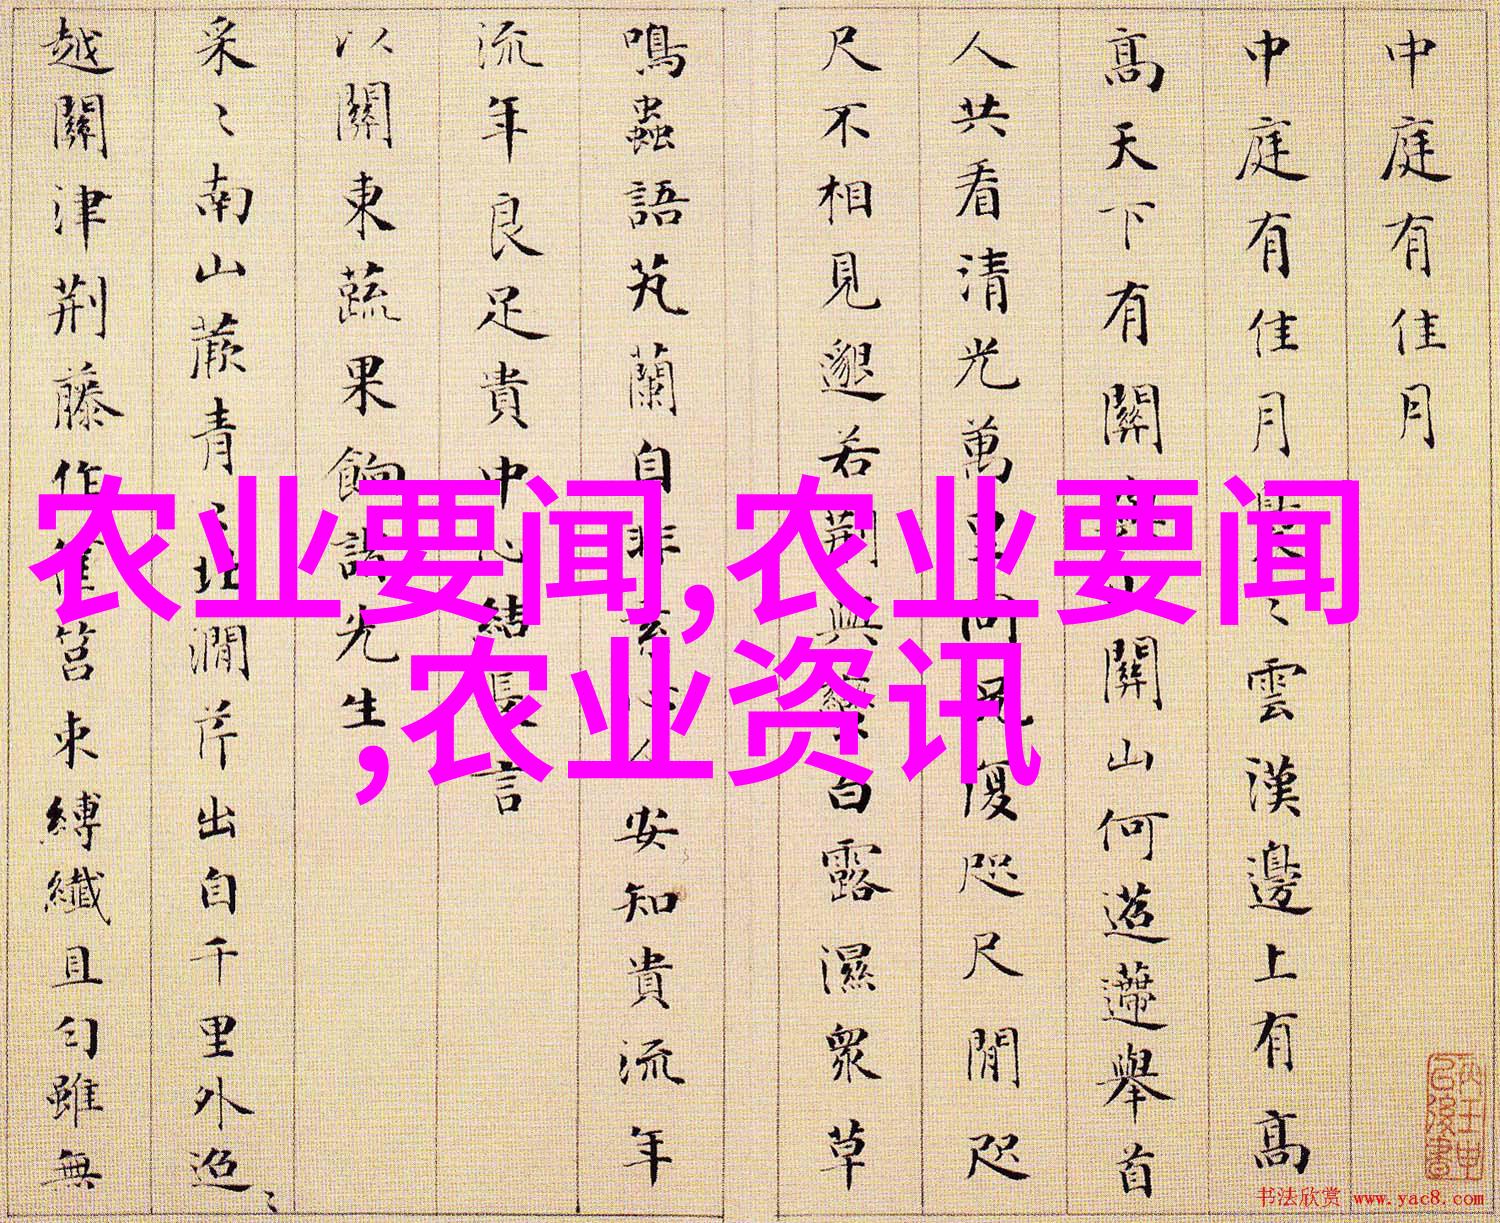 中庭有佳月
中庭有佳月〻雲漢邊上有高
高天下有關關山何迢遰舉首
人共看清光萬里問復咫尺間咫
尺不相見邈若荆與白露濕衆草
鳴蟲語芄蘭自非安知貴流年
流年良足貴中心結長言
以關東蔬果餉先生
采〻南山蕨青〻澗芹出自千里外迢〻
越關津荆藤作筥束縛纖且勻雖無
農业要闻,农业要闻
,农业资讯
书法欣赏 www.yac8.com